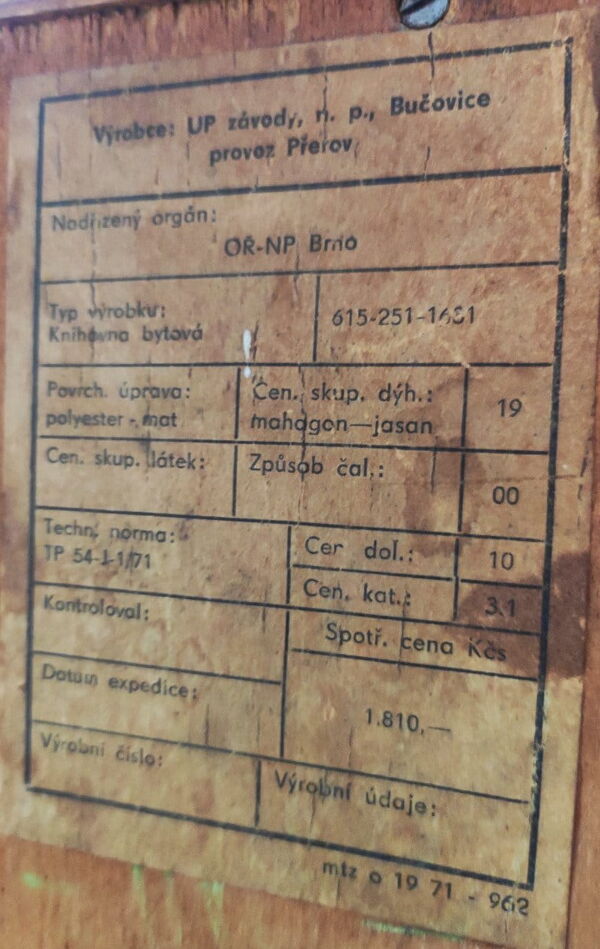 Výrobce: UP závody, n. p., Bučovice
provoz Přerov
Nadřízený orgán:
OŘ-NP Brno
Typ výrobku:
Knihovna bytová
615-251-1631
Povrch. úprava:
polyester - mat
Cen. skup. dýh.:
mahagon—jasan
19
Cen. skup. látek:
Způsob čal.:
00
Techn. norma:
TP 54-J-1/71
Cen dol.:
10
Cen. kat.:
3.1
Kontroloval:
Spotř. cena Kčs
Datum expedice:
1.810,—
Výrobní číslo:
Výrobní údaje:
mtz o 19 71 - 962